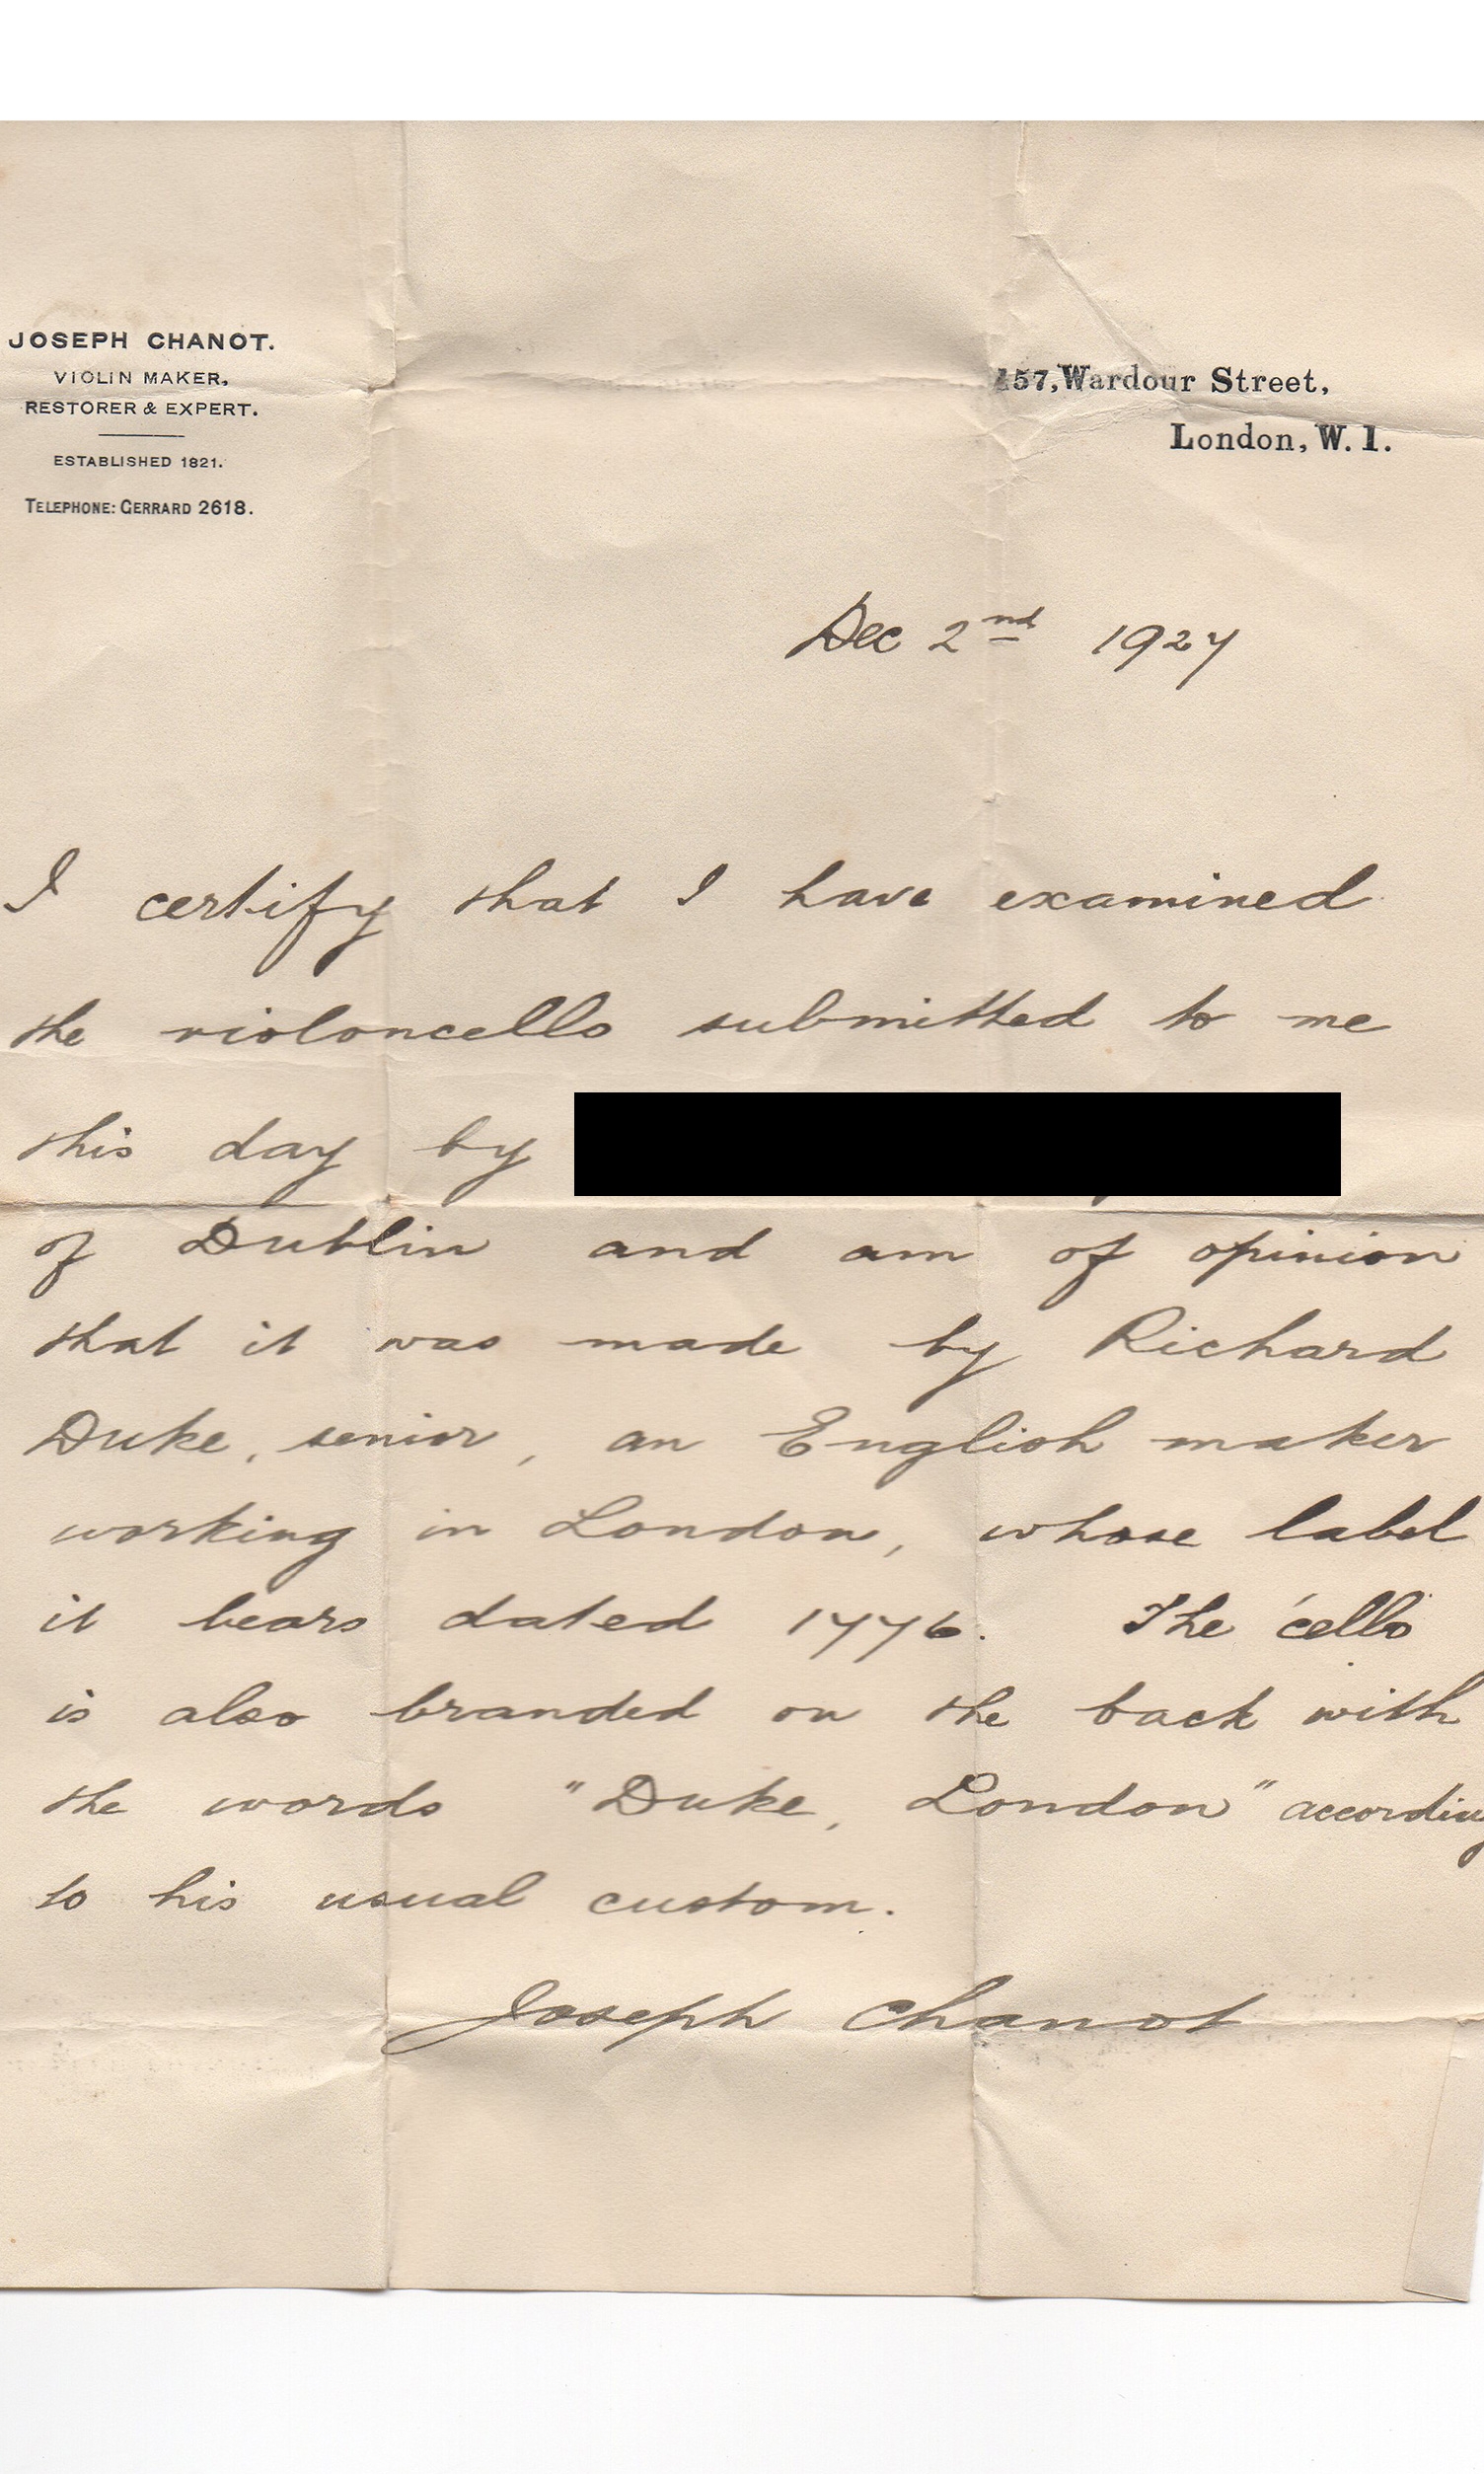 JOSEPH CHANOT.
VIOLIN MAKER,
RESTORER & EXPERT.
ESTABLISHED 1821.
TELEPHONE: GERRARD 2618.
157, Wardour Street,
London, W. 1.
Dec 2nd 1927
I certify that I have examined
the violoncello submitted to me
this day by
of Dublin and am of opinion
that it was made by Richard
Duke, senior, an English maker
working in London, whose label
it bears dated 1776. The 'cello
is also branded on the back with
the words "Duke, London" according
to his usual custom.
Joseph Chanot